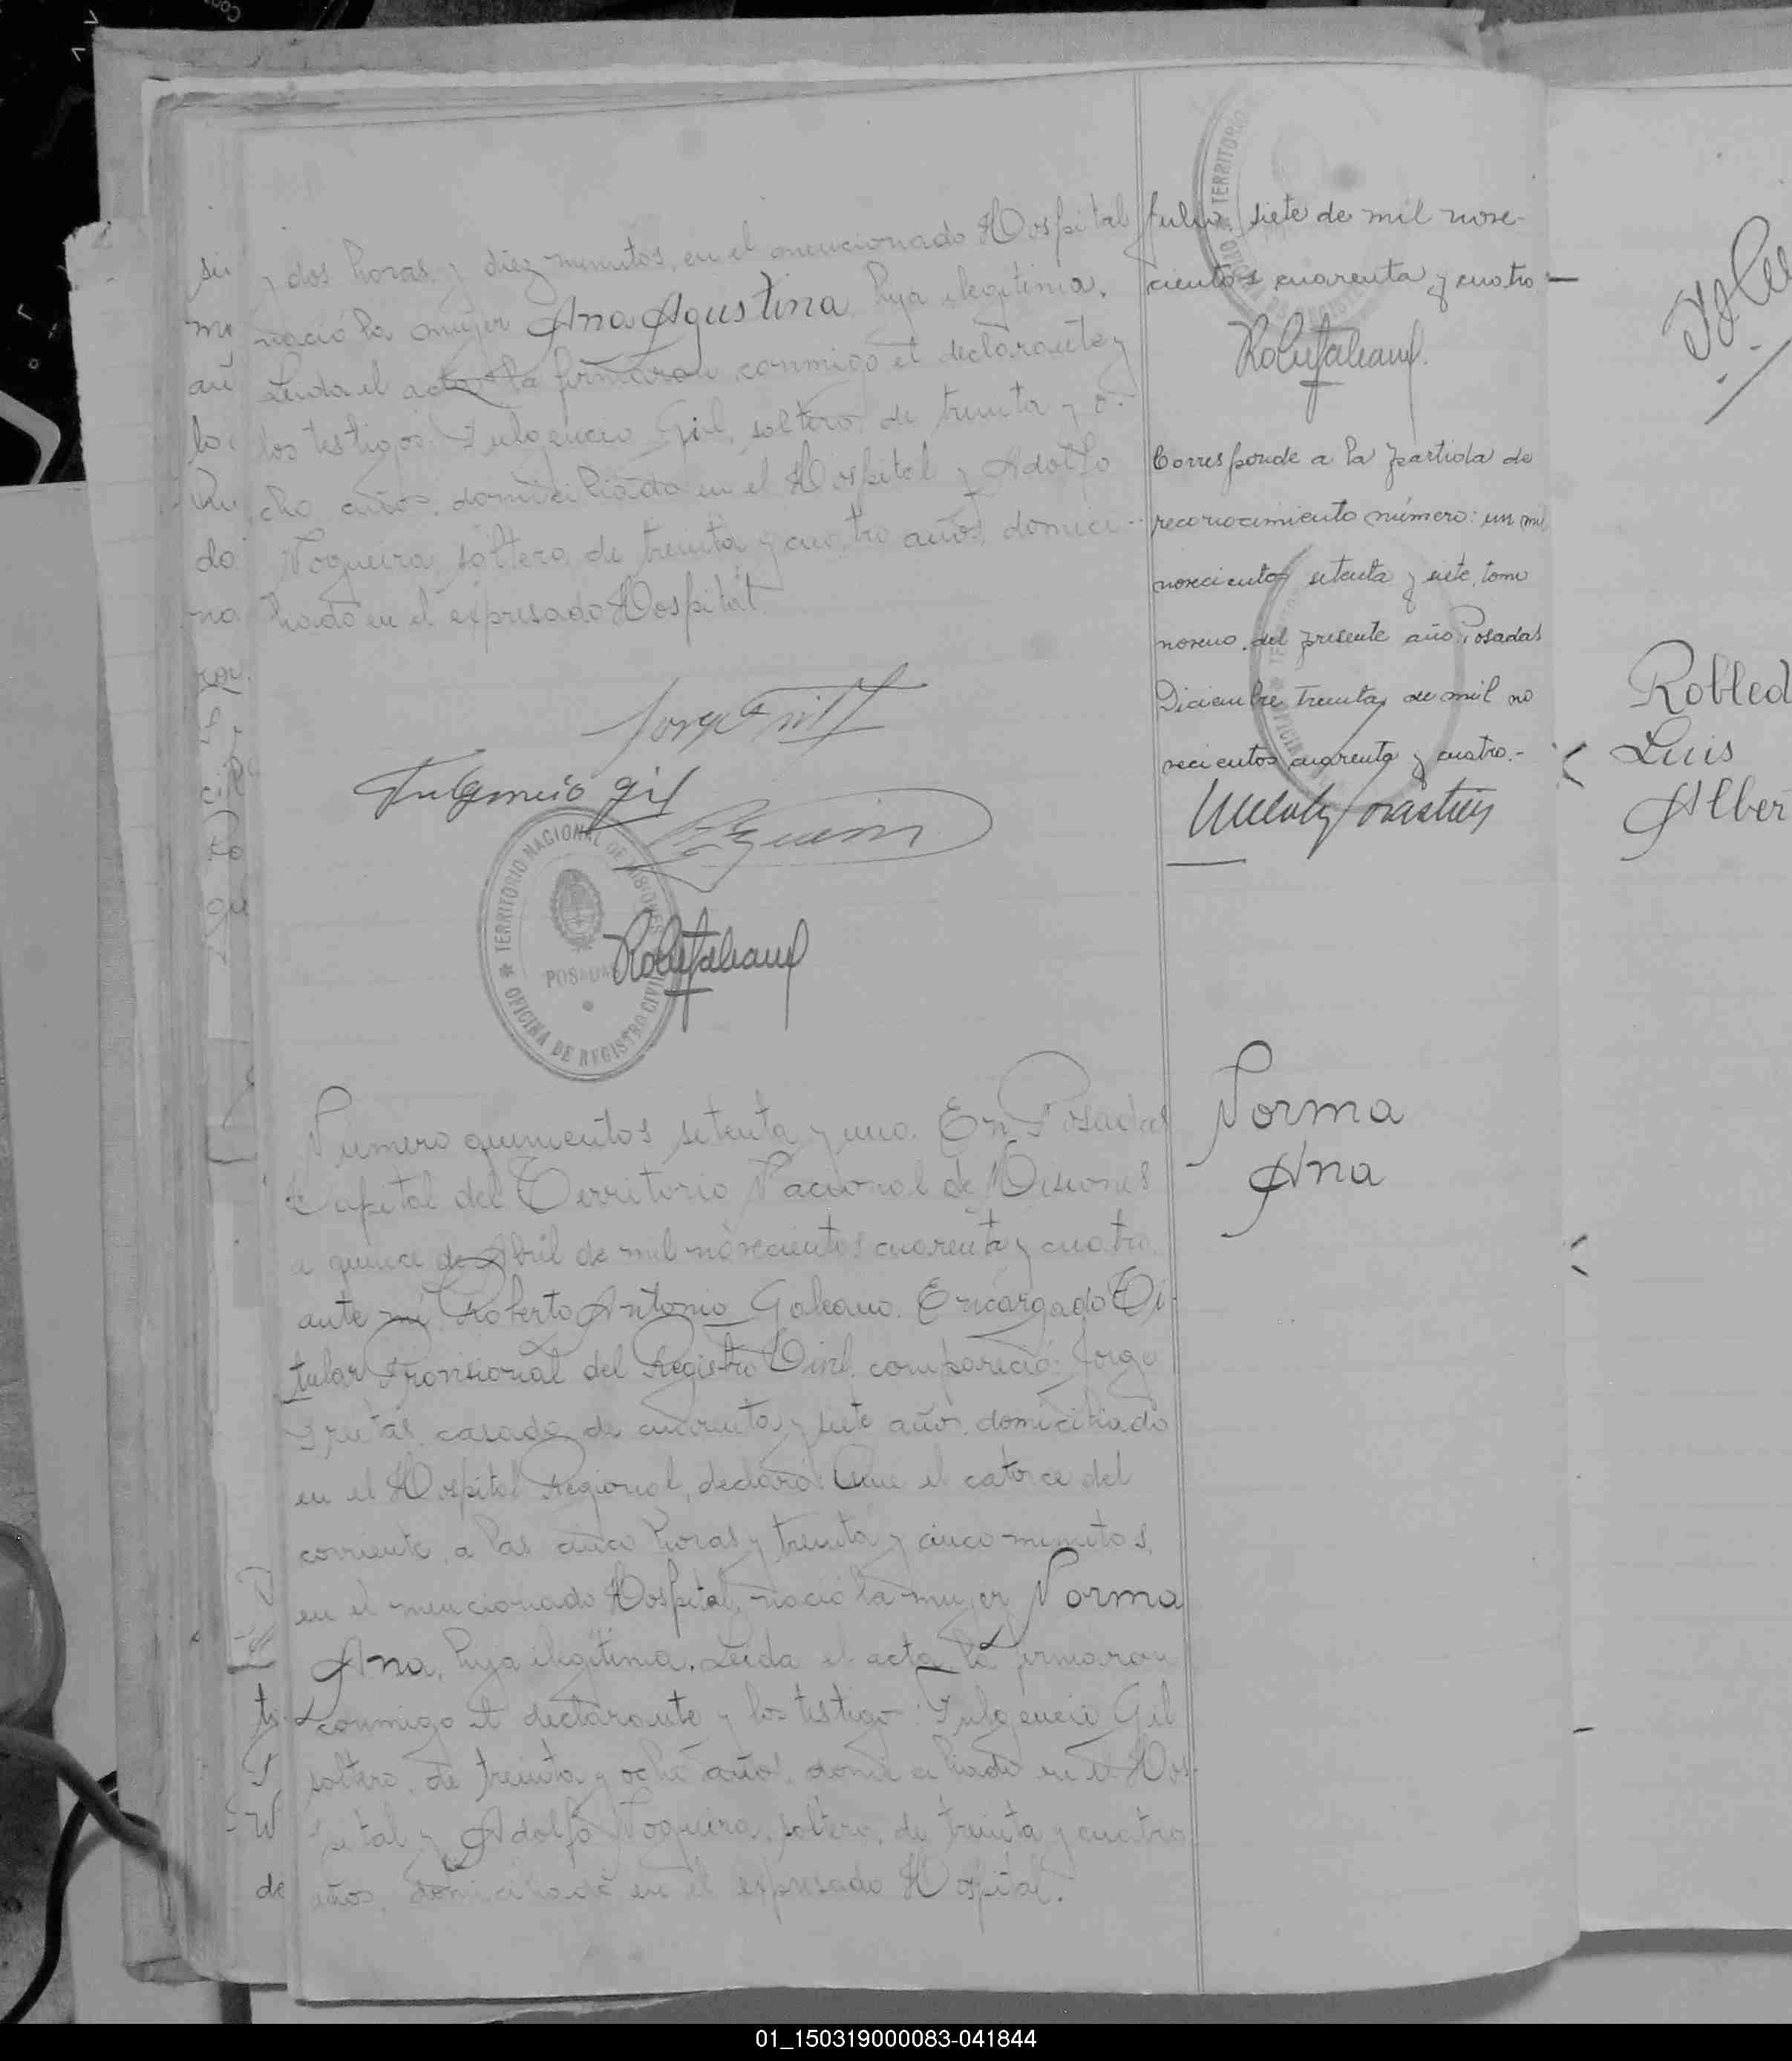 y dos horas y diez minutos, en el mencionado Hospital
nació la mujer Ana Agustina, hija ilegitima.
Leida el acta la firmaron conmigo el declarante y
los testigos: Fulgencio Gil, soltero, de treinta y o-
cho años, domiciliado en el Hospital y Adolfo
Nogueira, soltero, de treinta y cuatro años, domici-
liado en el expresado Hospital
Fulgencio Gil
TERRITORIO NACIONAL DE MISIONES
POSADAS
OFICINA DE REGISTRO CIVIL
Julio, siete de mil nove-
cientos cuarenta y cuatro
TERRITORIO
Corresponde a la partida de
reconocimiento número: un mil
novecientos setenta y siete, tomo
noveno, del presente año Posadas
Diciembre treinta de mil no
vecientos cuarenta y cuatro.-
Número quinientos setenta y uno. En Posadas
Capital del Territorio Nacional de Misiones
a quince de Abril de mil novecientos cuarenta y cuatro
ante mi Roberto Antonio Galeano. Encargado Ti-
tular Provisional del Registro Civil, compareció: Jorge
casado, de cuarenta y siete años, domiciliado
en el Hospital Regional, declaró: Que el catorce del
corriente, a las cinco horas y treinta y cinco minutos,
en el mencionado Hospital, nació la mujer Norma
Ana, hija ilegitima. Leida el acta la firmaron
conmigo el declarante y los testigo: Fulgencio Gil
soltero, de treinta y ocho años, domiciliado en el Hos-
pital y Adolfo Nogueira, soltero, de treinta y cuatro
años, domiciliado en el expresado Hospital.
Norma
Ana
Robled
Luis
Alber
01_150319000083-041844